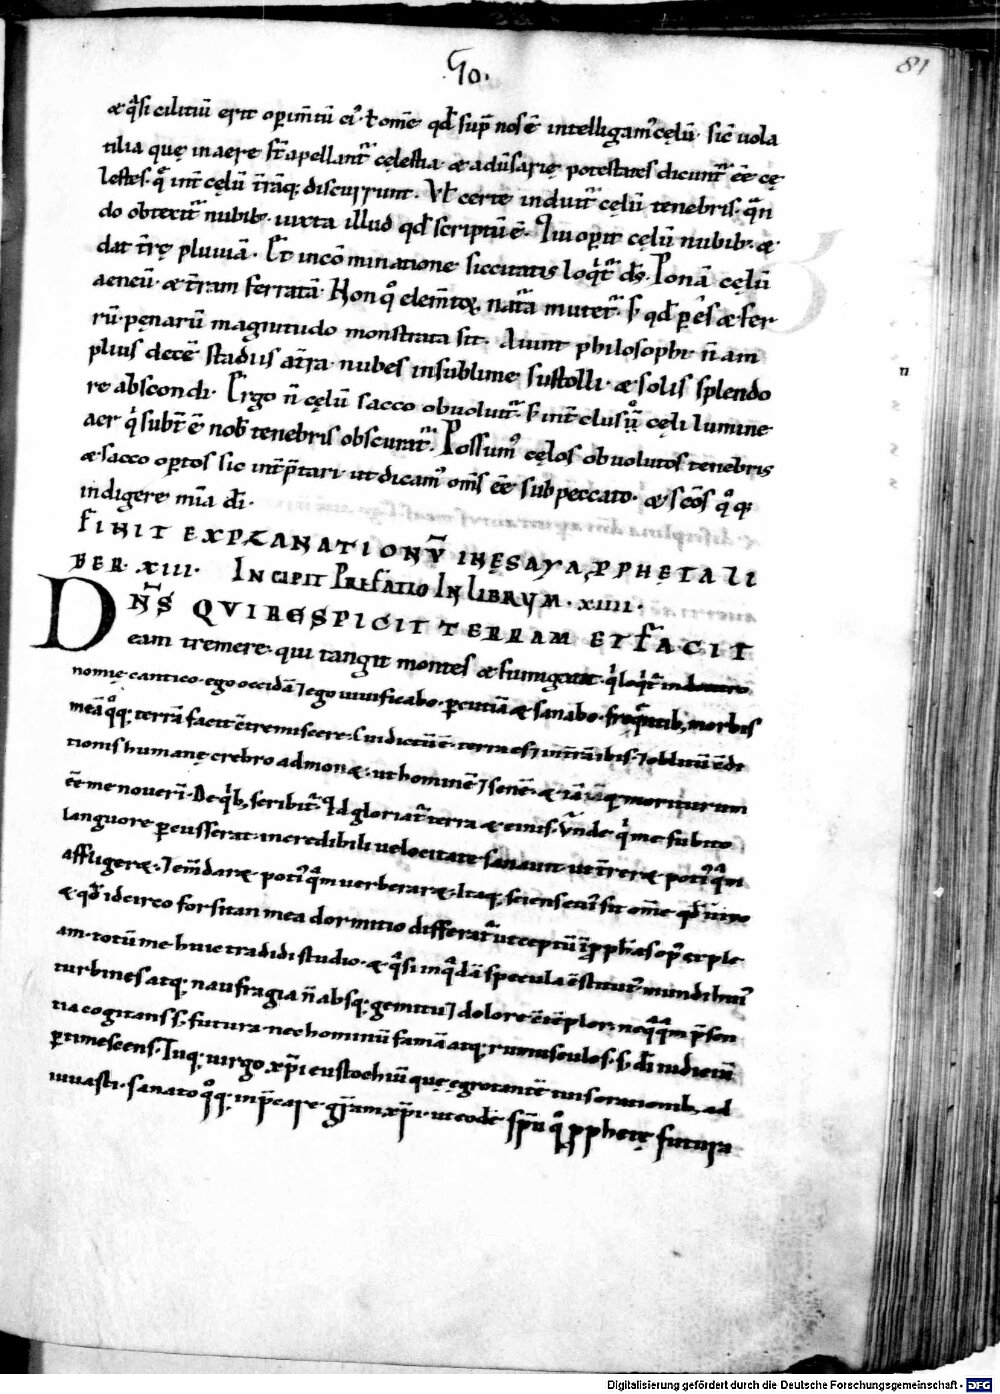 50.
81
& q̄si cilitiū erit opim̄tū ei᾽. ł om̄e qđ sup̄ nos ē intelligam᾽ cęlū. sic̄ uola
tilia quę in aere s̄t apellant᷑ cęlestia & aduersarię potestates dicunt᷑ ee᷑ cę
lestes. q̄ int̄ cęlū t̄rāq; discurrunt. Vł certe induit᷑ cęlū tenebris. q̄n
do obtexit᷑ nubib᾽. iuxta illud qđ scriptū ē. Qui operit cęlū nubib᾽. &
dat t̄rę pluuiā. Et in cōminatione siccitatis loq̄t᷑ d̄s. Ponā cęlū
aeneū. & t̄ram ferratā. Non q᾽ elem̄tor̨ nat̄a mutet᷑. s; qđ p̱ ęs & fer
rū. pęnarū magnitudo monstrata sit. Aiunt philosophi n̄ am
plius decē stadiis a t̄ra nubes in sublime sustolli. & solis splendo
re abscondi. Ergo n̄ cęlū sacco obuoluit᷑. s; int̄clusū cęli lumine
aer q̄ subt̄ ē nob᾽ tenebris obscurat᷑. Possum᾽ cęlos obuolutos tenebris
& sacco op̱tos sic int̄p̄tari. ut dicam᾽ om̄s ee᷑ sub peccato. & sc̄os q᾽q;
indigere mīa dī.
FINIT EXPLANATIONV̄ IN ESAYA PPHETA LI
BER. XIII. INCIPIT PREFATIO IN LIBRVM. XIIII.
DN̄S QVI RESPICIT TERRAM ET FACIT
eam tremere. qui tangit montes & fumigant. q̄ loq̄t᷑ in deutro
nomię cantico. ego occidā ⁊ ego uiuificabo. p̱cutiā & sanabo. freq̄ntib; morbis
meā q᾽q; terrā facit c̄tremiscere. Cui dictū ē. terra es ⁊ in t̄ram ibis. ⁊ oblitū c̄di
tionis humanę crebro admon&. ut hominē ⁊ senē. & iā iāq; moriturum
ēē me nouerī. De q̄b; scribit᷑. Qd gloriat᷑ terra & cinis. Vnde q̄ me subito
languore p̱cusserat. incredibili uelocitate sanauit. ut t̄rer& poti᾽ q̄m
affliger&. ⁊ em̄dar& poti᾽ q̄m uerberar&. Itaq; sciens cui᾽ sit om̄e qđ uiuo
& qđ idcirco forsitan mea dormitio differat᷑ ut ceptū ī pph̄as op᾽ exple
am. totū me huic tradidi studio. & q̄si in q̄dā specula c̄stitut᾽ mundi hui᾽
turbines atq; naufragia n̄ absq; gemitu ⁊ dolore c̄tēplor. neq̄q̄m p̄sen
tia cogitans s; futura. nec hominū famā atq; rumusculos. s; dī iudiciū
p̱timescens. Tuq; uirgo xp̄i eustochiū quę ęgrotantē tuis orationib; ad
iuuasti. sanato q᾽q; inp̄care gr̄am xp̄i. ut eodē sp̄u q᾽ pphetę futura
Digitalisierung gefördert durch die Deutsche Forschungsgemeinschaft - DFG